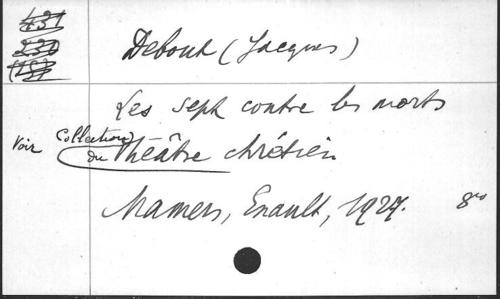 431
230
Debout (Jacques)
Les sept contre les morts
Voir Collection
du Théâtre chrétien
Mamers, Enault, 1927. 8vo